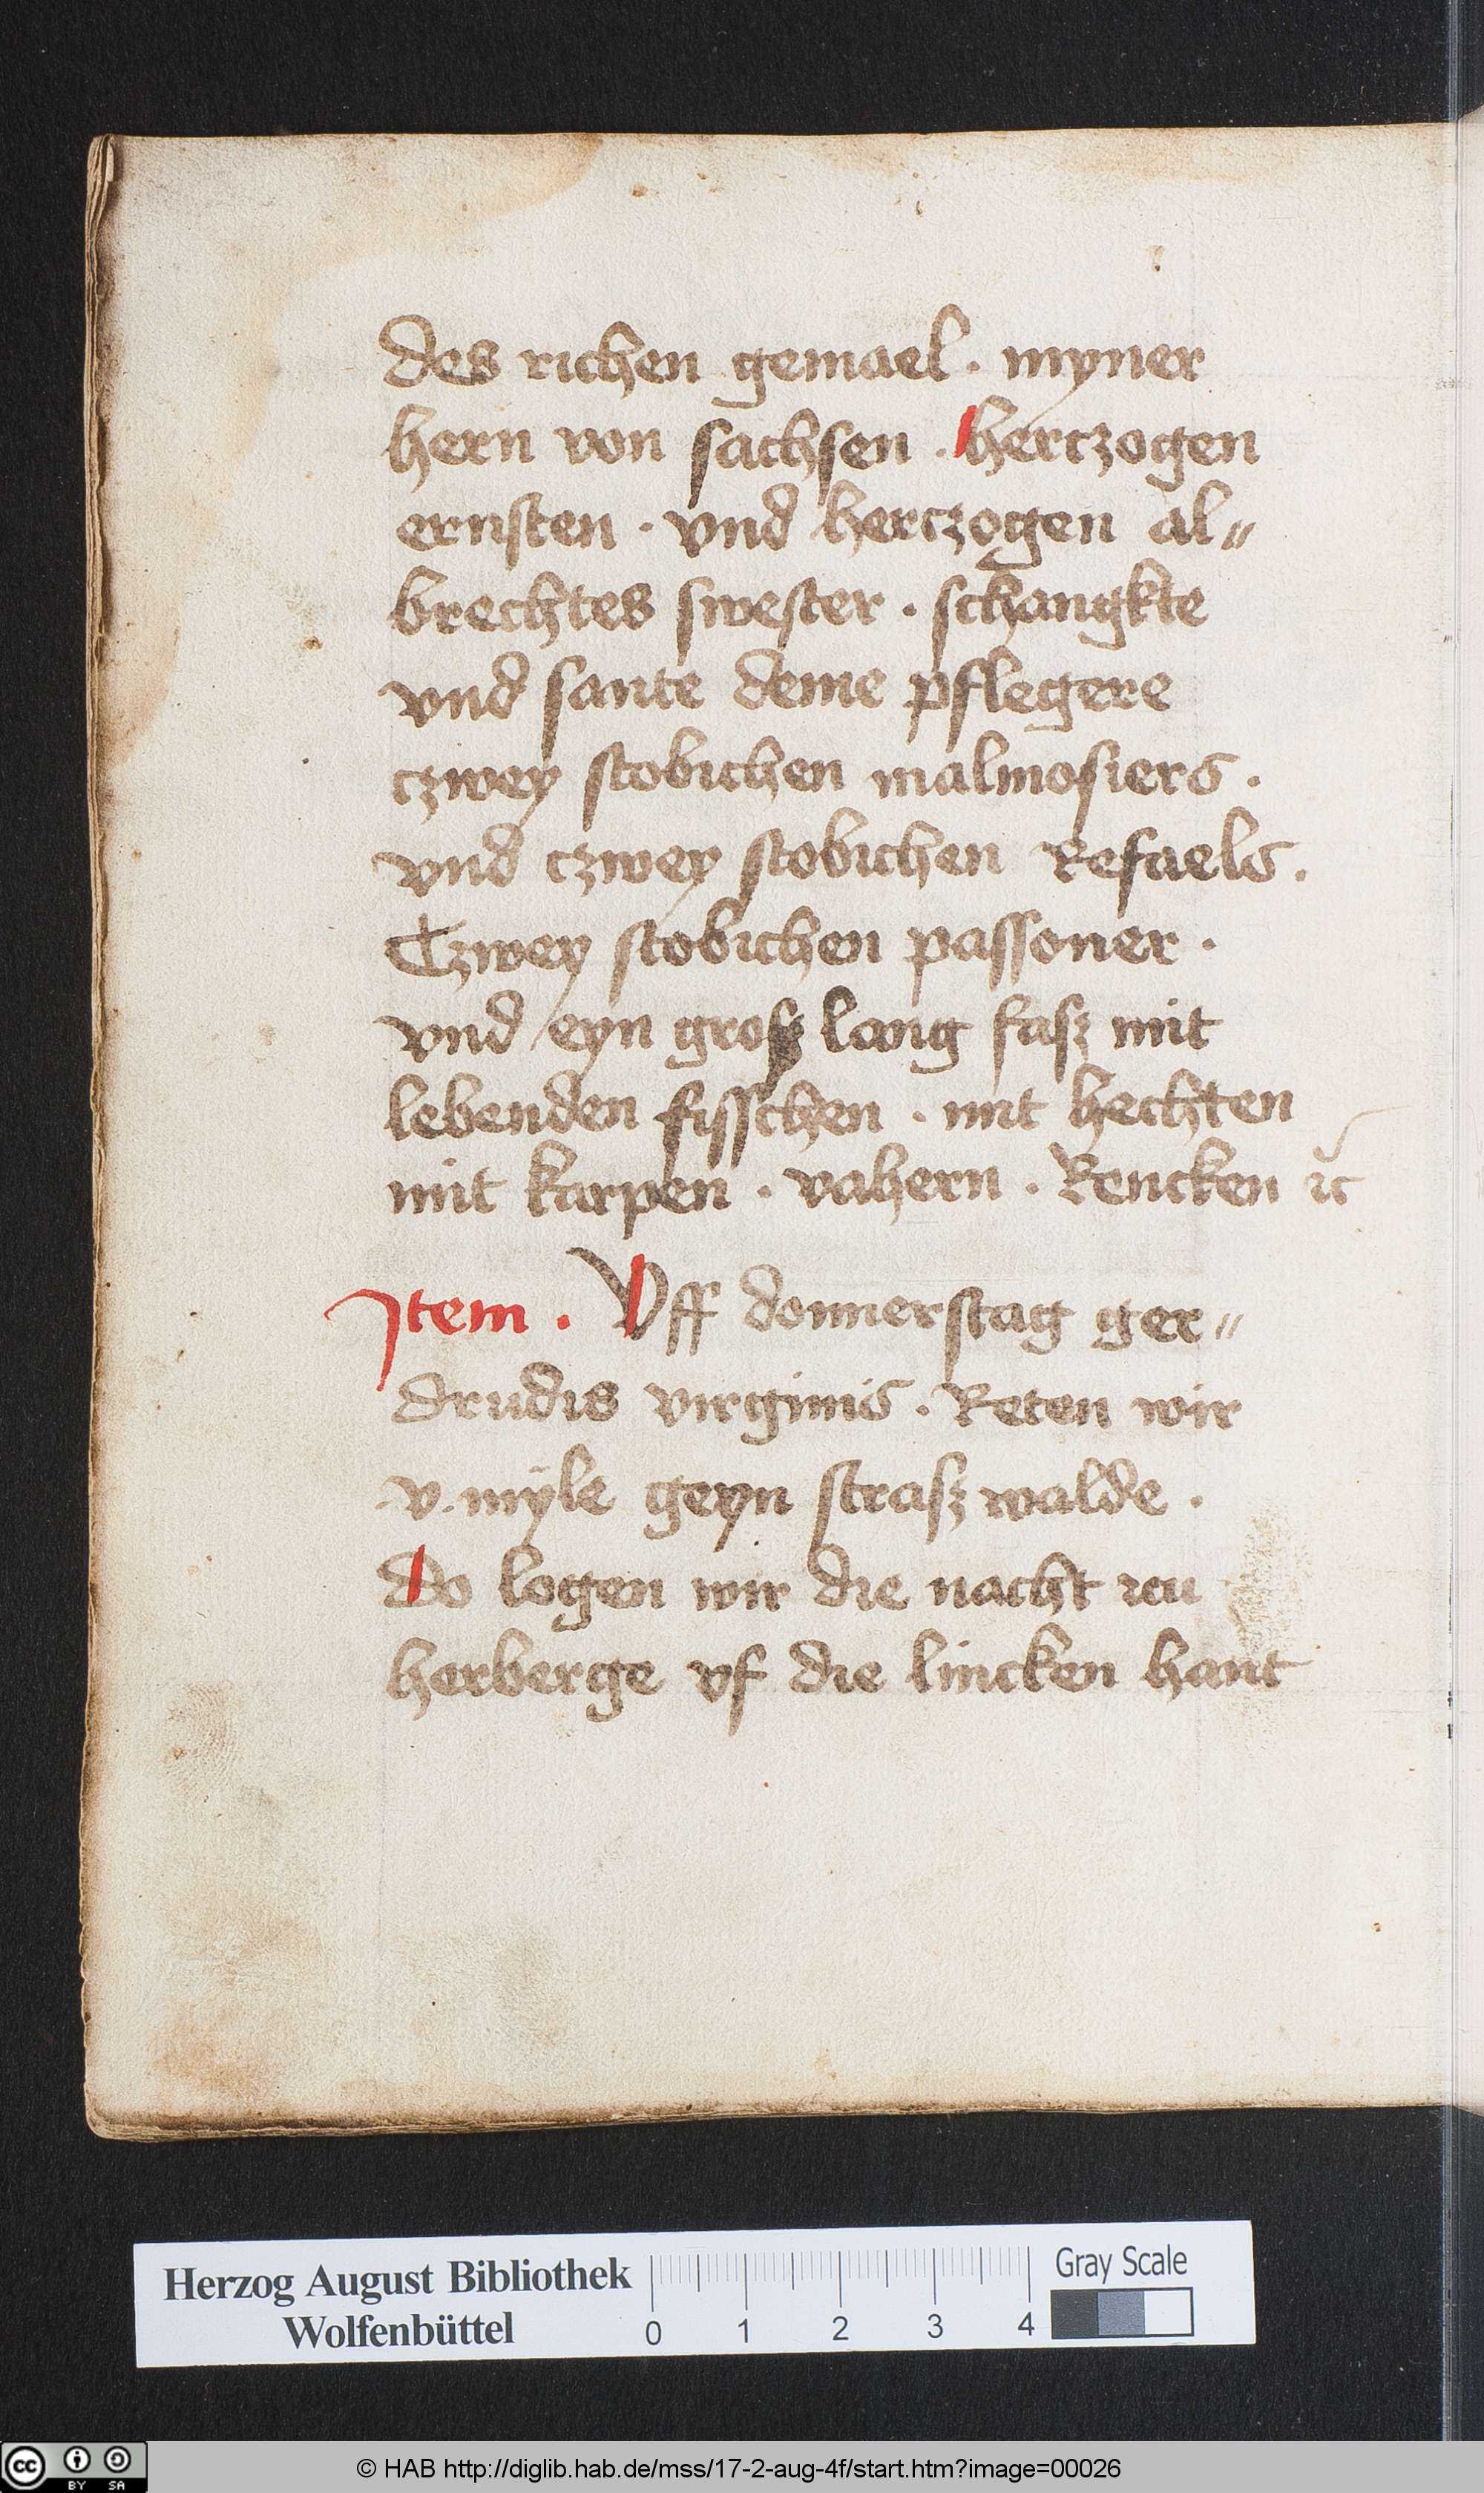 des richen gemael · myner
hern von sachsen · hertzogen
ernsten · vnd hertzogen al=
brechtes swester · schangkte
vnd sante deme pflegere
czwey stobichen malmosiers ·
vnd czwey stobichen Refaels ·
Czwey stobichen passoner ·
vnd eyn grosz lang fasz mit
lebenden fisschen · mit hechten
mit karpen · vahern · Rencken ꝛc
Jtem · Vff donnerstag ger=
drudis virginis · Reten wir
·v· myle geyn strasz walde ·
do logen wir die nacht zcu
herberge vf die lincken hant
Herzog August Bibliothek
Wolfenbüttel
0 1 2 3 4
Gray Scale
cc BY SA
© HAB http://diglib.hab.de/mss/17-2-aug-4f/start.htm?image=00026